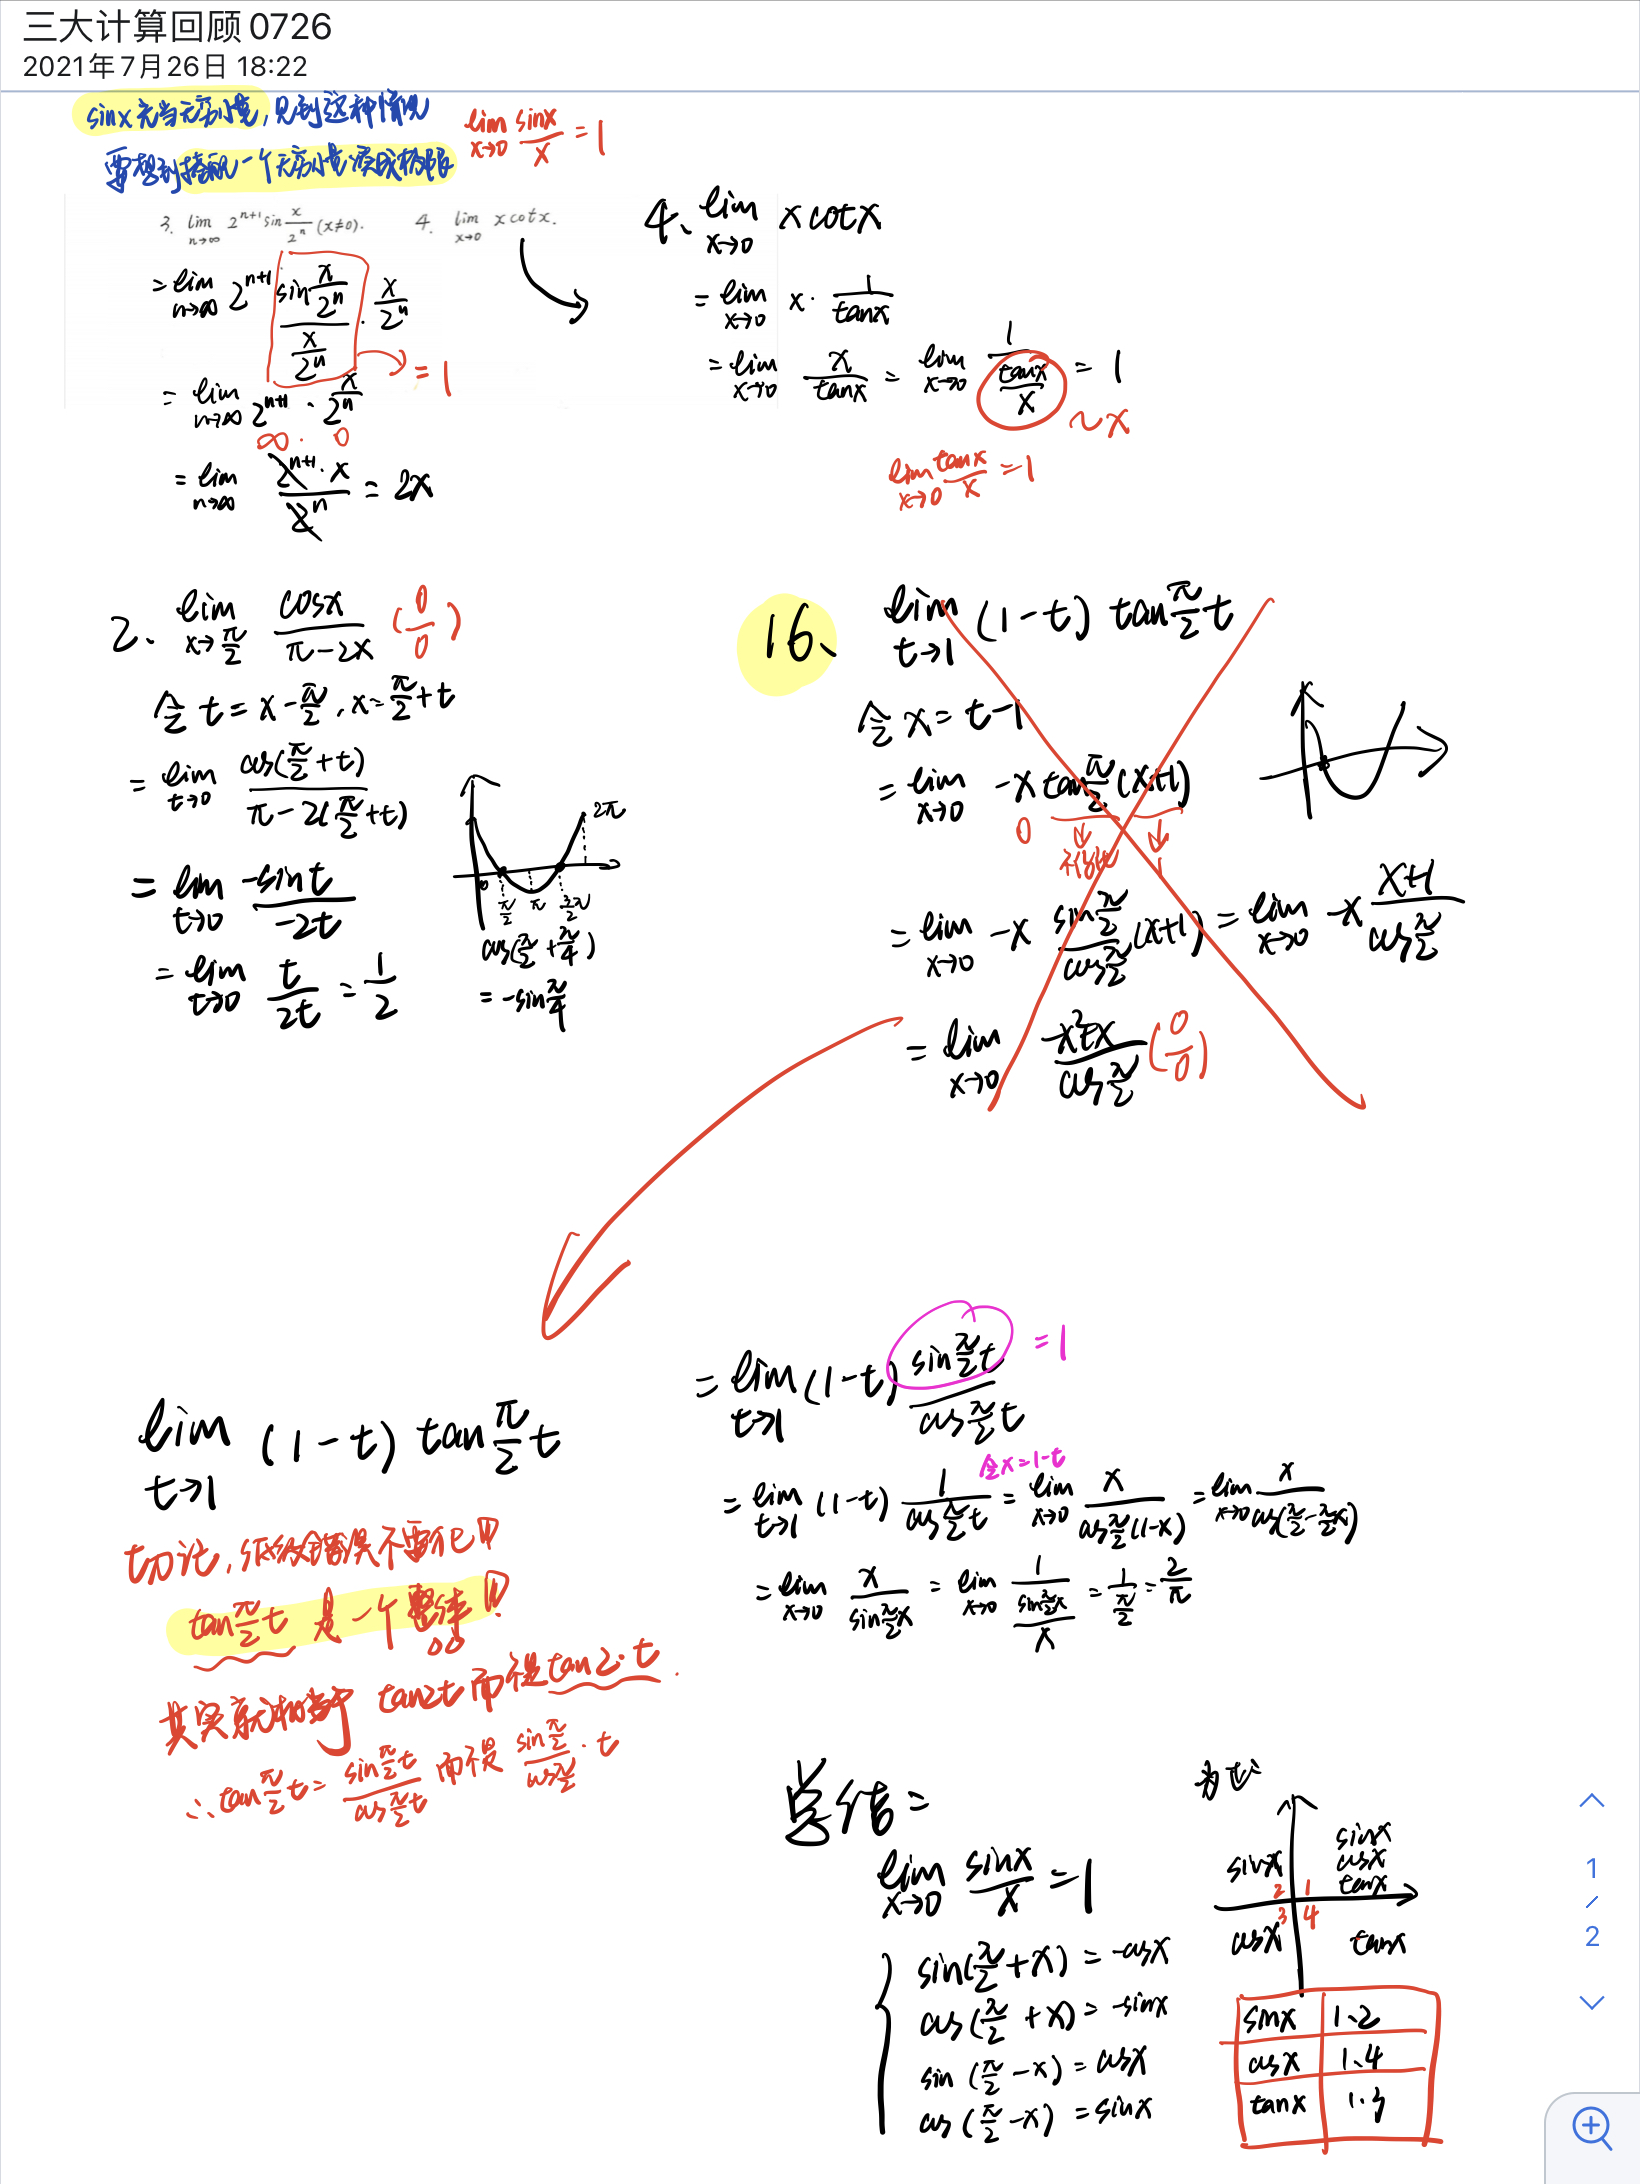 三大计算回顾0726
2021年7月26日 18:22
sinx充当无穷小量,见到这种情况
要想到搭配一个无穷小量凑成极限
lim x→0 sinx/x = 1
3. lim n→∞ 2^{n+1} sin x/2^n (x≠0).
4. lim x→0 x cot x.
= lim n→∞ 2^{n+1} (sin x/2^n)/(x/2^n) · x/2^n
= 1
= lim n→∞ 2^{n+1} · x/2^n
∞ · 0
= lim n→∞ 2^{n+1}·x / 2^n = 2x
4、 lim x→0 x cotx
= lim x→0 x · 1/tanx
= lim x→0 x/tanx = lim x→0 1/(tanx/x) = 1
~x
lim x→0 tanx/x = 1
2、 lim x→π/2 cosx/(π-2x) (0/0)
令 t = x - π/2 , x = π/2 + t
= lim t→0 cos(π/2+t) / (π-2(π/2+t))
= lim t→0 -sint / -2t
= lim t→0 t/2t = 1/2
2π
0 π/2 π 3/2π
cos(π/2 + π/4)
= -sin π/4
16、 lim t→1 (1-t) tan π/2 t
令 x = t-1
= lim x→0 -x tan π/2 (x+1)
0 1
= lim x→0 -x (sin π/2)/(cos π/2) (x+1) = lim x→0 -x (x+1)/(cos π/2)
= lim x→0 (-x²+x)/(cos π/2) (0/0)
lim t→1 (1-t) tan π/2 t
切记,低级错误不要犯!!
tan π/2 t 是一个整体!!
其实就相当于 tan2t 而不是 tan2·t.
∴ tan π/2 t = (sin π/2 t)/(cos π/2 t) 而不是 (sin π/2)/(cos π/2) · t
= lim t→1 (1-t) (sin π/2 t)/(cos π/2 t) = 1
令x=1-t
= lim t→1 (1-t) 1/(cos π/2 t) = lim x→0 x/(cos π/2 (1-x)) = lim x→0 x/(cos(π/2 - π/2 x))
= lim x→0 x/(sin π/2 x) = lim x→0 1/((sin π/2 x)/x) = 1/(π/2) = 2/π
总结:
lim x→0 sinx/x = 1
sin(π/2+x) = -cosx
cos(π/2+x) = -sinx
sin(π/2-x) = cosx
cos(π/2-x) = sinx
为正
sinx
sinx
cosx
tanx
2 1
3 4
cosx
tanx
sinx 1、2
cosx 1、4
tanx 1、3
1
/
2